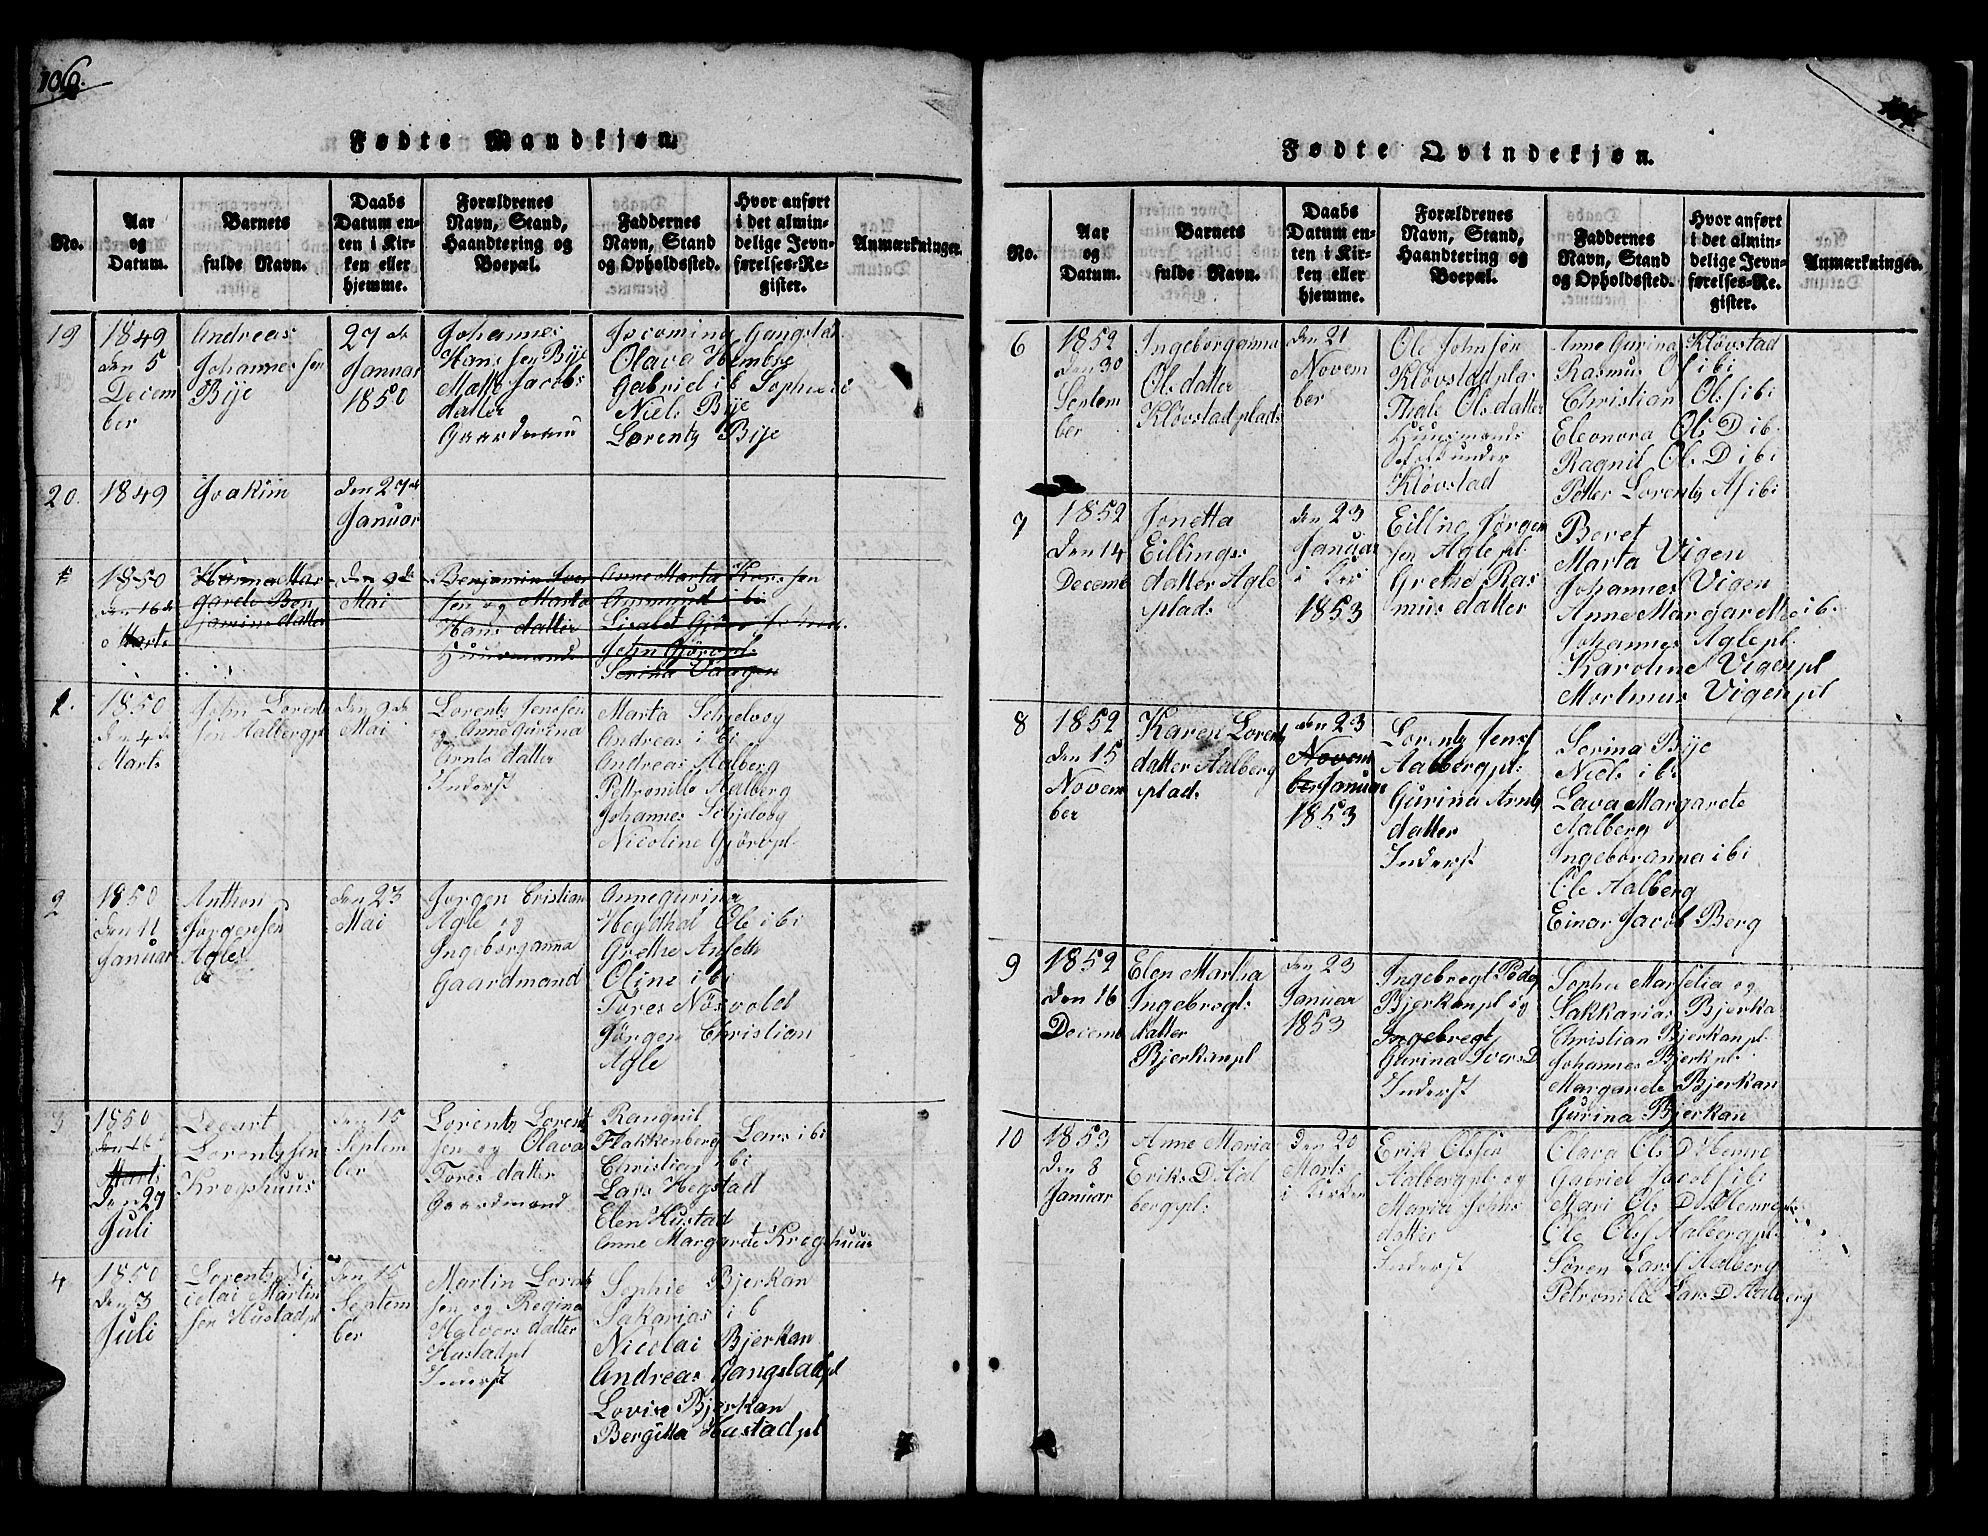 106.
Fødte Mandkjøn.
No.
Aar
og
Datum.
Barnets
fulde Navn.
Daabs
Datum en-
ten i Kir-
ken eller
hjemme.
Forældrenes
Navn, Stand,
Haandtering og
Boepæl.
Faddernes
Navn, Stand
og Opholdssted.
Hvor anført
i det almin-
delige Jevn-
førelses-Re-
gister.
Anmærkninger.
19
1849
den 5
Decem
ber
Andreas
Johannessen
Bije
27de
Januar
1850
Johannes
Hanssen Bije
Jacobs
datter
Gaardmand
Jocomina Gangstad
Olava Hembre
Gabriel ibi Sophie ibi
Niels Bije
Lorentz Bije
20.
1849
Joakim
den 27de
Januar
1850
den 16de
Marts
Hanna Mar
garete Ben
jamins datter
den 9de
Mai
Benjamin Iver
sen og Marta
Hans datter
Huusmand
Anne Marta Hans sen
Amund ibi
Lisabet
John Gjörvpl.
Serina Vangen
1.
1850
den 4de
Marts
John Lorentz
sen Aalbergpl
den 9de
Mai
Lorentz Jenssen
og Anne Gurina
Arnts datter
Inderst
Marta Schjelvog
Andreas ibi
Andreas Aalberg
Pettronille Aalberg
Johannes Schjelvog
Nicoline Gjörvpl.
2
1850
den 11
Januar
Anthon
Jørgensen
Agle
den 23
Mai
Jørgen Cristian
Agle og
Ingeborganna
Gaardmand
Anne gurina
Heydhal Ole ibi
Grethe Anseth
Oline ibi
Tores Nösvold
Jørgen Christian
Agle
3
1850
den 16
Marts
den 27
Juli
Lorentzsen
Kroghuus
den 15
Septem
ber
Lorentz Lorentz
sen og Olava
Tores datter
Gaardmand
Rangnil
Flakkenberg Lars ibi
Christian ibi
Lars Hegstad
Elen Hustad
Anne Margarete Kroghuus
4
1850
den 3
Juli
Lorents Ni
colai Martin
sen Hustadpl
den 15
Septem
ber
Martin Lorentz
sen og Regina
Halvors datter
Hustadpl
Inderst
Sophie Bjerkan
Sakarias ib
Nicolai Bjerkan
Andreas Gangstadpl
Lovise Bjerkan
Bergitta Hustadpl
Fødte Qvindekjøn.
No.
Aar
og
Datum.
Barnets
fulde Navn.
Daabs
Datum en-
ten i Kir-
ken eller
hjemme.
Forældrenes
Navn, Stand,
Haandtering og
Boepæl.
Faddernes
Navn, Stand
og Opholdssted.
Hvor anført
i det almin-
delige Jevn-
førelses-Re-
gister.
Anmærkninger.
6
1852
den 30
Septem
ber
Ingeborganna
Ols datter
Klövstadplads
den 21
Novem
ber
Ole Johnsen
Klövstadpla
Thale Olsdatter
Huusmands
folk under
Klövstad
Anne Gurina Klövstad
Rasmus O ibi
Christian Ols ibi
Eleonora Ols D ib.
Ragnil Ols D ibi
Petter Lorentz As ibi
7
1852
den 14
Decemb
Jonetta
Eillings
datter Agle
plads
den 23
Januar
i Kir
1853
Eilling Jørgen
sen Aglepl.
Grethe Ras
mus datter
Beret
Marta Vigen
Johannes Vigen
Anne Margarethe ib.
Johannes Aglepl.
Karoline Vigenpl
Mortinus Vigenpl
8
1852
den 15
Novem
ber
Karen Lorentz
datter Aalberg
plads
den 23
Novem
ber Januar
1853
Lorentz Jens
Aalbergpl:
Gurina Arnts
datter
Inderst
Serina Bije
Niels ibi
Lava Margarete
Aalberg
Ingeboranna ibi
Ole Aalberg
Einar Jacob Berg
9
1852
den 16
Decemb
Elen Martha
Ingebregt:
datter
Bjerkanpl
den 23
Januar
1853
Ingebregt Peder
Bjerkanpl og
Ingebregt
Gurina Ivers D
Inderst
Sophie Marselia og
Sakkarias Bjerka
Christian Bjerkanpl.
Johannes Bjerkpl.
Margarete Bjerkan
Gurina Bjerkan
10
1853
den 8
Januar
Anne Maria
Eriks D Aal
bergpl.
den 20
Marts
i Kirken
Erik Olsen
Aalbergpl: og
Maria Johs
datter
Inderst
Olava Ols D Hemre
Gabriel Jacobs ibi
Mari Ols D. Hemre
Ole Ols Aalbergpl
Søren Lars Aalberg
Petronille Lars D Aalberg